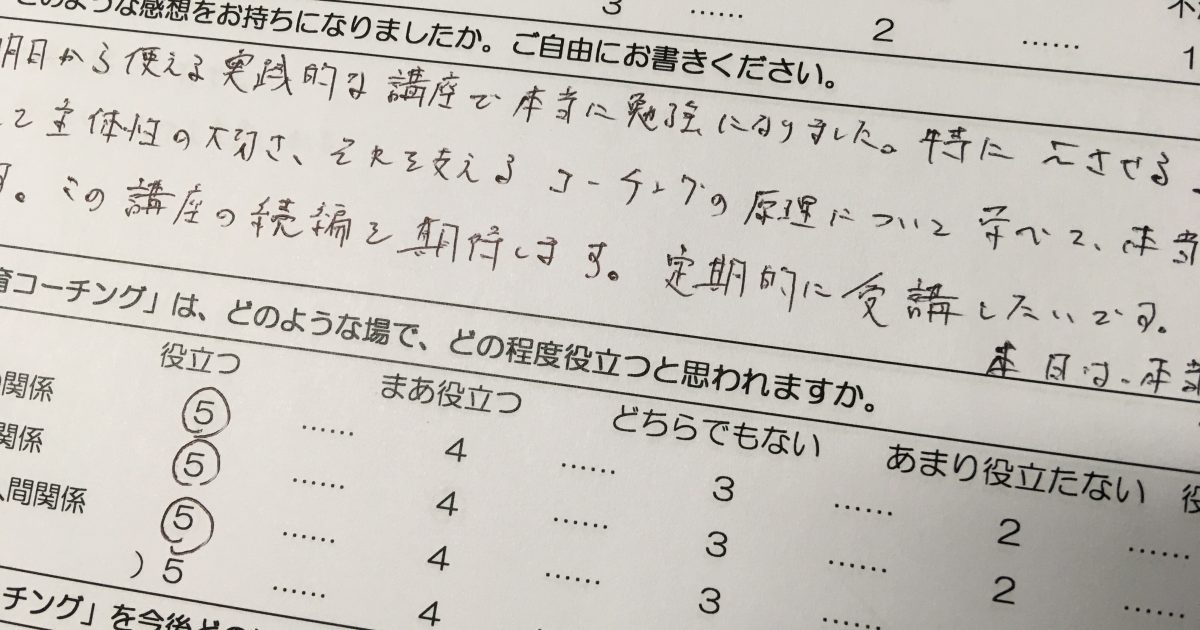 のような感想をお持ちになりましたか。ご自由にお書きください。
3 …… 2 …… 1
明日から使える実践的な講座で本当に勉強になりました。特に させる
て主体性の大切さ、それを支えるコーチングの原理について学べて、本当
。この講座の続編を期待します。定期的に受講したいです。
本日は、本当
育コーチング」は、どのような場で、どの程度役立つと思われますか。
役立つ まあ役立つ どちらでもない あまり役立たない 役
関係 5 …… 4 …… 3 …… 2 ……
関係 5 …… 4 …… 3 …… 2 ……
人間関係 5 …… 4 …… 3 ……
) 5 …… 4
チング」を今後ど